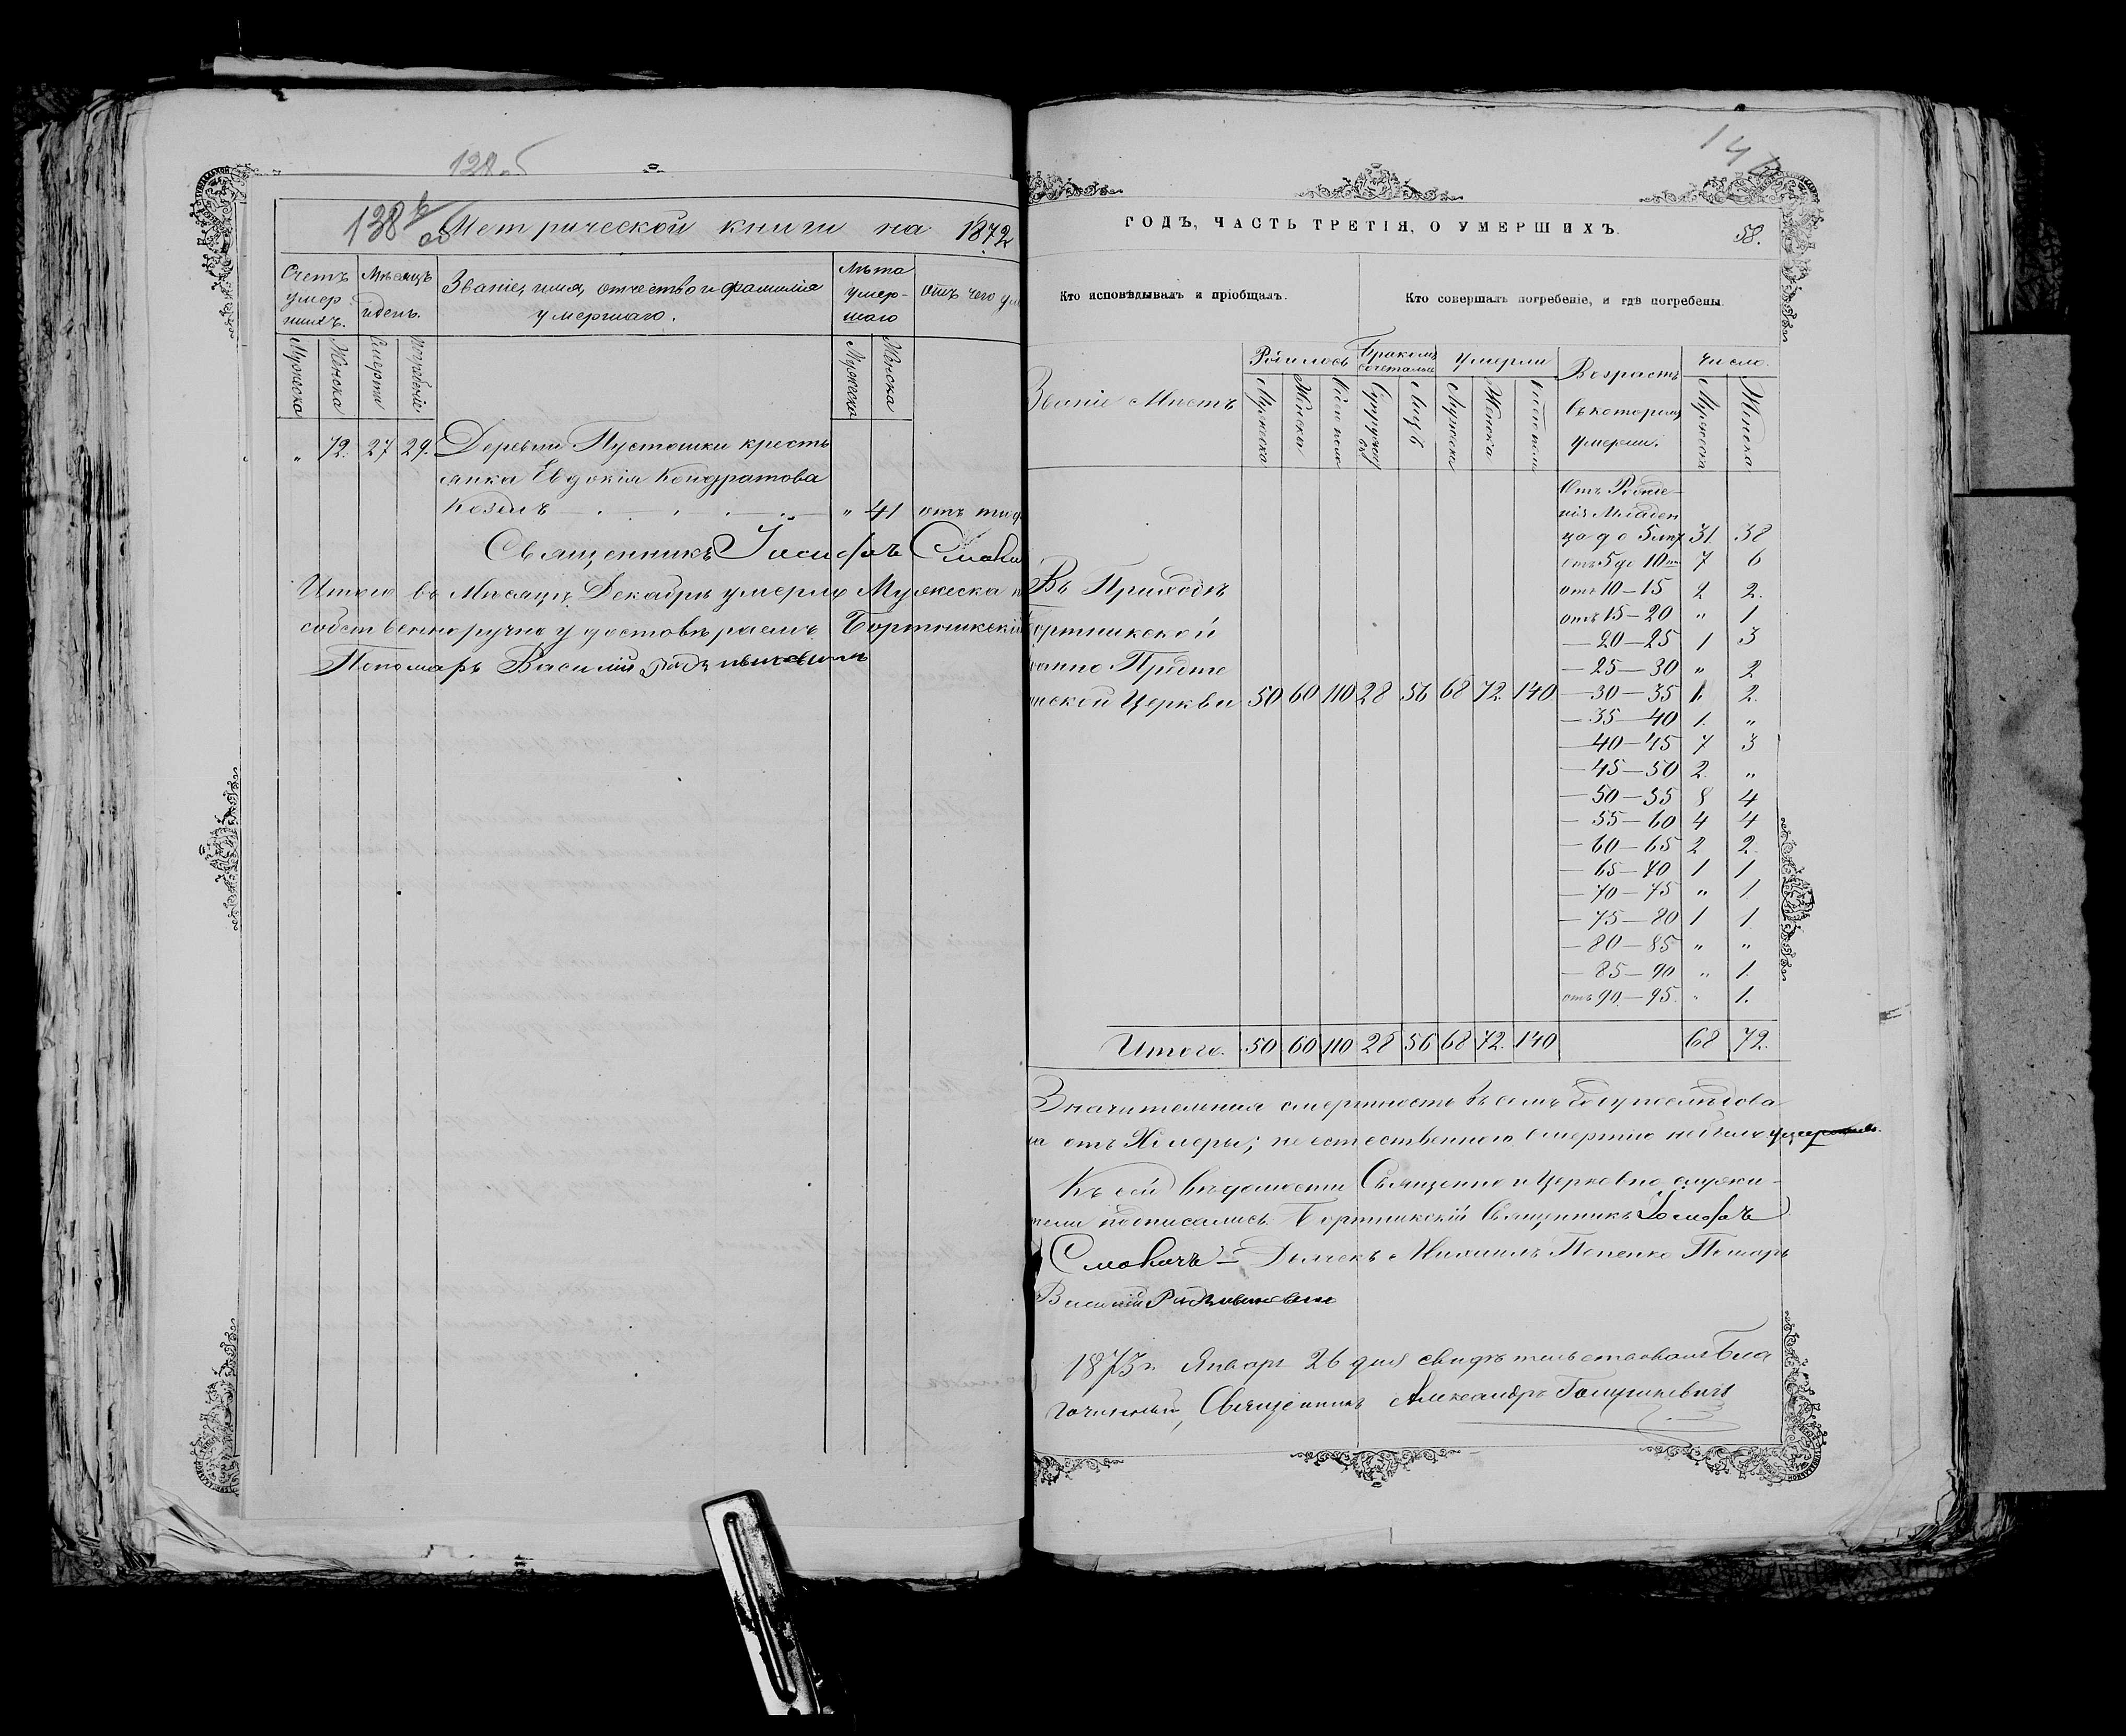 128об
138 об
Метрической книги на 1872
Счетъ умерших.
Мѣсяцъ и день.
Званіе, имя, отчество и фамилія умершаго.
Лѣта умершаго
отъ чего
Мужеска
Женска
Смерти
погребенія
Мужеска
Женска
„ 72. 27 29. Деревни Пустошки кресть
янка Евдокія Кондратова
Козелъ „ 41 отъ
Священникъ Іосифъ
Итого въ Мѣсяцѣ Декабрѣ умерло Мужеска
собственноручно удостовѣряемъ Бортникскій
Пономарь Василій
14
ГОДЪ, ЧАСТЬ ТРЕТІЯ, О УМЕРШИХЪ.
58.
Кто исповѣдывалъ и пріобщалъ.
Кто совершалъ погребеніе, и гдѣ погребены.
Званіе Мѣстъ
Родилось
Бракомъ сочеталось
Умерли
Возрастъ въ которомъ умерли.
Число.
Мужеска
Женска
Обоего пола
Супружествъ
Лицъ
Мужеска
Женска
Обоего пола
Мужеска
Женска
Отъ Рожде-
нія Младен
ца до 5 лѣт 31. 38
отъ 5 до 10 7 6
отъ 10-15 2 2.
отъ 15-20 „ 1
— 20-25 1 3
— 25-30 „ 2
— 30-35 1. 2.
— 35-40 1. „
— 40-45 7 3
— 45-50 2. „
— 50-55 8 4
— 55-60 4 4
— 60-65 2 2.
— 65-70 1 1
— 70-75 „ 1
— 75-80 1 1.
— 80-85 „ „
— 85-90 „ 1.
отъ 90-95. „ 1.
Въ Приходѣ
ортникской
анно Предте
ской Церкви 50 60 110 28 56 68 72. 140
Итого. 50 60 110 28 56 68 72. 140 68 72.
Значительная смертность въ семъ году послѣдова
ла отъ Холеры; неестественною смертію не было
Къ сей вѣдомости Священно и Церковно служи-
тели подписались. Бортникскій Священникъ Іосифъ
Дьячекъ Михаилъ Попенко Пономарь
Василій
1873 г. Января 26 дня свидѣтельствовалъ Бла
гочинный, Священникъ Александръ